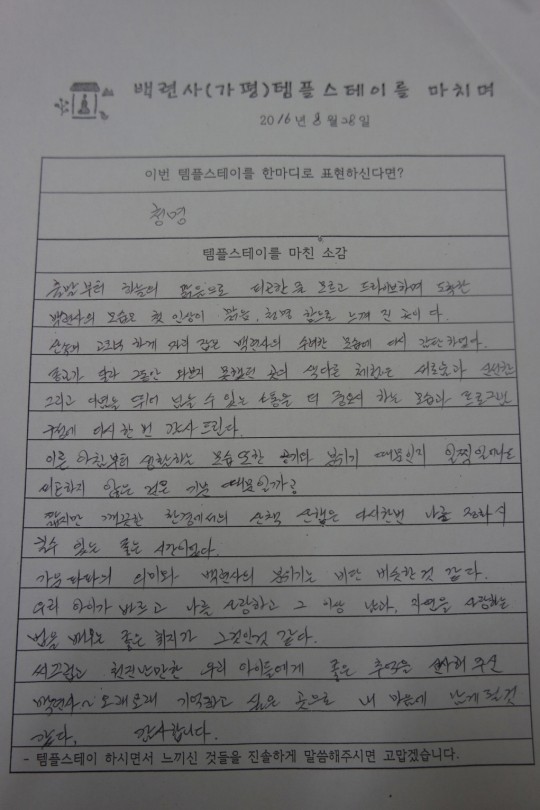 백련사(가평)템플스테이를 마치며
2016년 8월 28일
이번 템플스테이를 한마디로 표현하신다면?
청명
템플스테이를 마친 소감
부터 하늘의 맑음으로 피곤한 줄 모르고 드라이브하며 도착한
백련사의 모습은 첫 인상이 맑음, 청명 함으로 느껴 진 곳이다.
산속에 고즈넉 하게 자리 잡은 백련사의 수려한 모습에 다시 감탄하였다.
종교가 달라 그동안 와보지 못했던 곳의 색다른 체험은 새로움과 신선함
그리고 자연을 뛰어 넘을 수 있는 소통을 더 중요시 하는 모습과 프로그램
구성에 다시 한 번 감사 드린다.
이른 아침부터 생활하는 모습 또한 공기와 분위기 때문인지 일찍 일어나도
피곤하지 않는 것은 기분 때문일까?
짧지만 깨끗한 환경에서의 산책 산행은 다시한번 나를 정화시
킬수 있는 좋은 시간이었다.
의미와 백련사의 분위기는 비슷한것 같다.
우리 아이가 바르고 나를 사랑하고 그 이상 남과, 자연을 사랑하는
법을 배우는 좋은 취지가 그것인것 같다.
시끄럽고 천진난만한 우리 아이들에게 좋은 추억을 선사해 주신
백련사~ 오래오래 기억하고 싶은 곳으로 내 마음에 남게 될것
같다. 감사합니다.
- 템플스테이 하시면서 느끼신 것들을 진솔하게 말씀해주시면 고맙겠습니다.